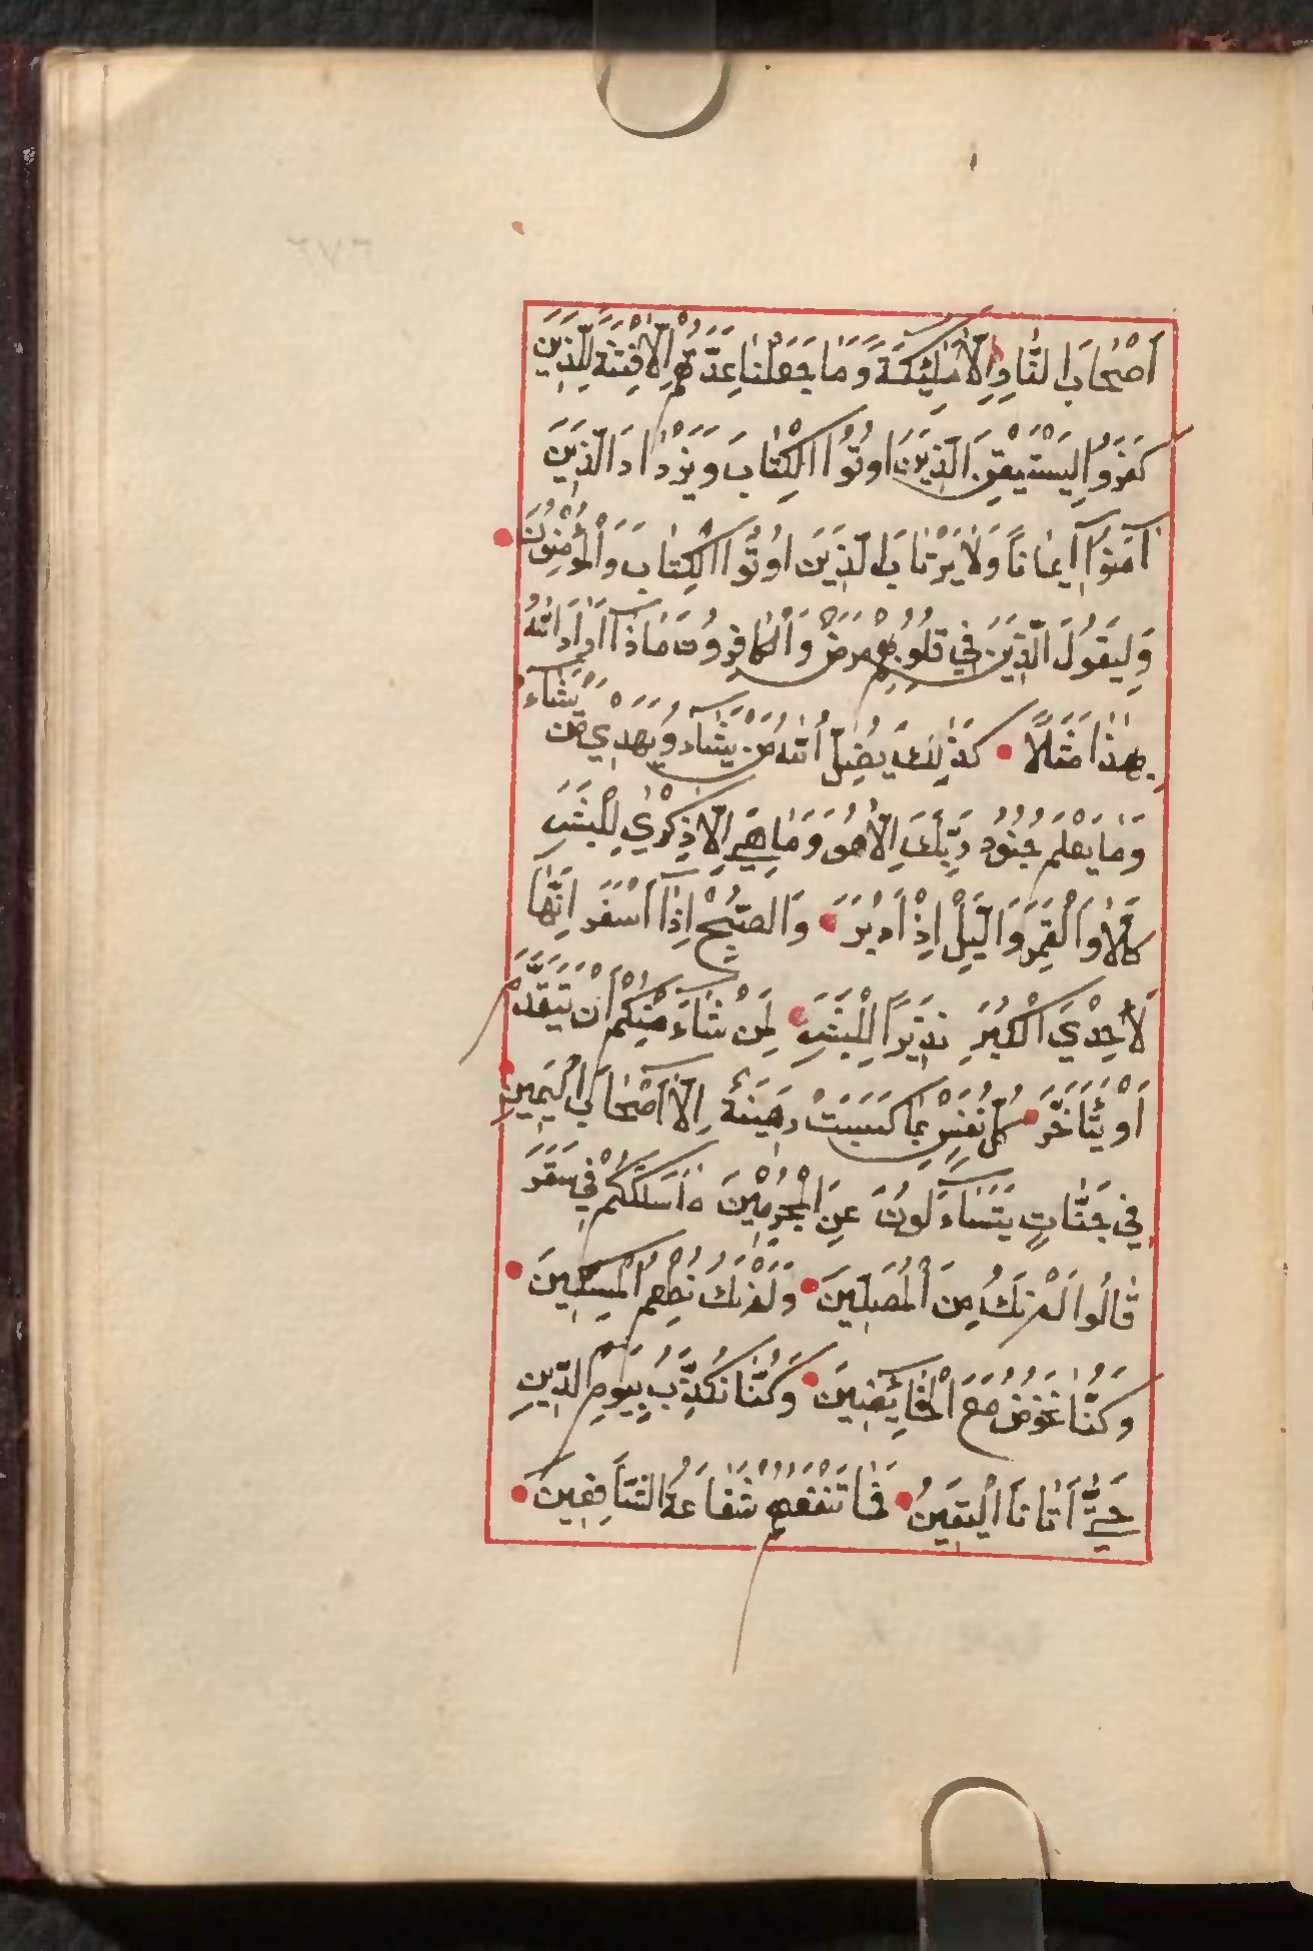 اَصْحَابَ النَّارِ اِلَّا مَلٰٓئِكَةً وَمَا جَعَلْنَا عِدَّتَهُمْ اِلَّا فِتْنَةً لِلَّذِينَ
كَفَرُوا لِيَسْتَيْقِنَ الَّذِينَ اُوتُوا الْكِتَابَ وَيَزْدَادَ الَّذِينَ
اٰمَنُوٓا اِيمَانًا وَلَا يَرْتَابَ الَّذِينَ اُوتُوا الْكِتَابَ وَالْمُؤْمِنُونَ
وَلِيَقُولَ الَّذِينَ فِي قُلُوبِهِمْ مَرَضٌ وَالْكَافِرُونَ مَاذَآ اَرَادَ اللّٰهُ
بِهٰذَا مَثَلًا كَذٰلِكَ يُضِلُّ اللّٰهُ مَنْ يَشَآءُ وَيَهْدِي مَنْ يَشَآءُ
وَمَا يَعْلَمُ جُنُودَ رَبِّكَ اِلَّا هُوَ وَمَا هِيَ اِلَّا ذِكْرٰي لِلْبَشَرِ
كَلَّا وَالْقَمَرِ وَالَّيْلِ اِذْ اَدْبَرَ وَالصُّبْحِ اِذَآ اَسْفَرَ اِنَّهَا
لَاِحْدَي الْكُبَرِ نَذِيرًا لِلْبَشَرِ لِمَنْ شَآءَ مِنْكُمْ اَنْ يَتَقَدَّمَ
اَوْ يَتَاَخَّرَ كُلُّ نَفْسٍ بِمَا كَسَبَتْ رَهِينَةٌ اِلَّآ اَصْحَابَ الْيَمِينِ
فِي جَنَّاتٍ يَتَسَآءَلُونَ عَنِ الْمُجْرِمِينَ مَا سَلَكَكُمْ فِي سَقَرَ
قَالُوا لَمْ نَكُ مِنَ الْمُصَلِّينَ وَلَمْ نَكُ نُطْعِمُ الْمِسْكِينَ
وَكُنَّا نَخُوضُ مَعَ الْخَآئِضِينَ وَكُنَّا نُكَذِّبُ بِيَوْمِ الدِّينِ
حَتّٰيٓ اَتَانَا الْيَقِينُ فَمَا تَنْفَعُهُمْ شَفَاعَةُ الشَّافِعِينَ